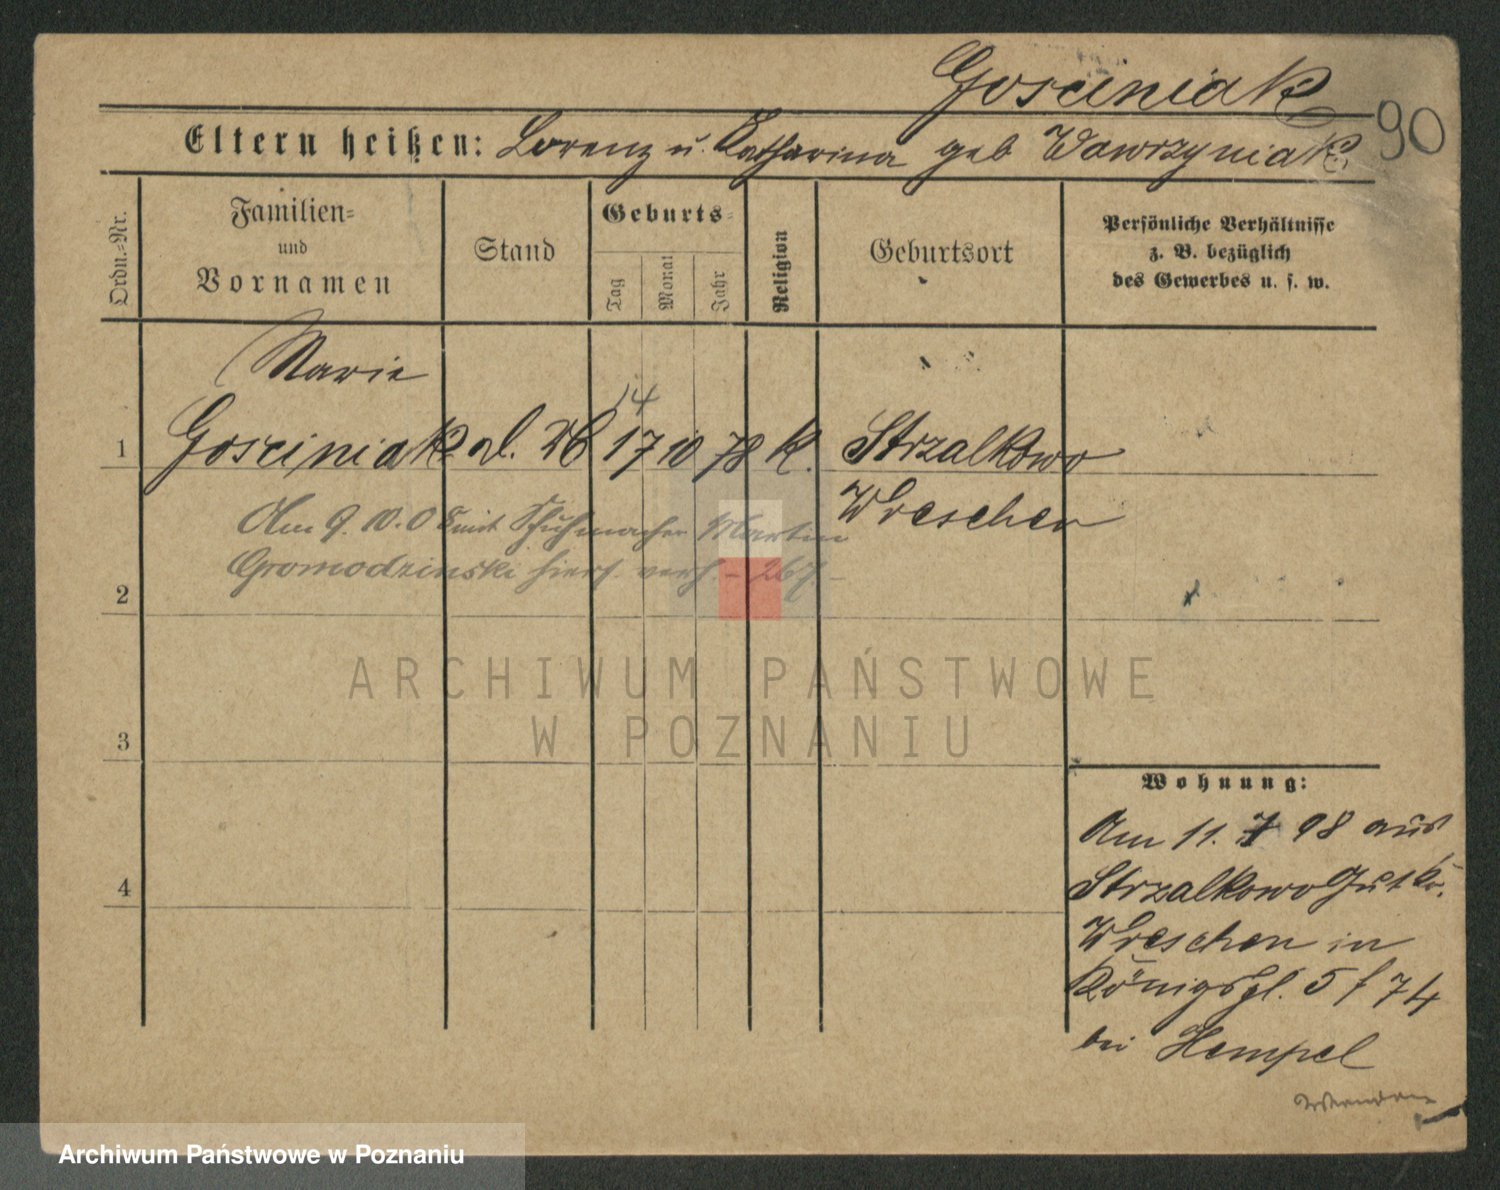 Gosciniak
90
Eltern heißen: Lorenz u. Katharina geb Wawrzyniak
Ordn.-Nr.
Familien-
und
Vornamen
Stand
Geburts-
Tag
Monat
Jahr
Religion
Geburtsort
Persönliche Verhältnisse
z. B. bezüglich
des Gewerbes u. s. w.
Marie
14
1 Gosciniak 17 10 78 K. Strzalkowo
Wreschen
Am 9. 10. 0 mit Schuhmacher Martin
Gromodzinski hiers. verh. - 267 -
2
3
4
ARCHIWUM PAŃSTWOWE
W POZNANIU
Wohnung:
Am 11. 7 98 aus
Strzalkowo
Wreschen in
Königspl. 5 / 74
bei Hempel
Wenden
Archiwum Państwowe w Poznaniu